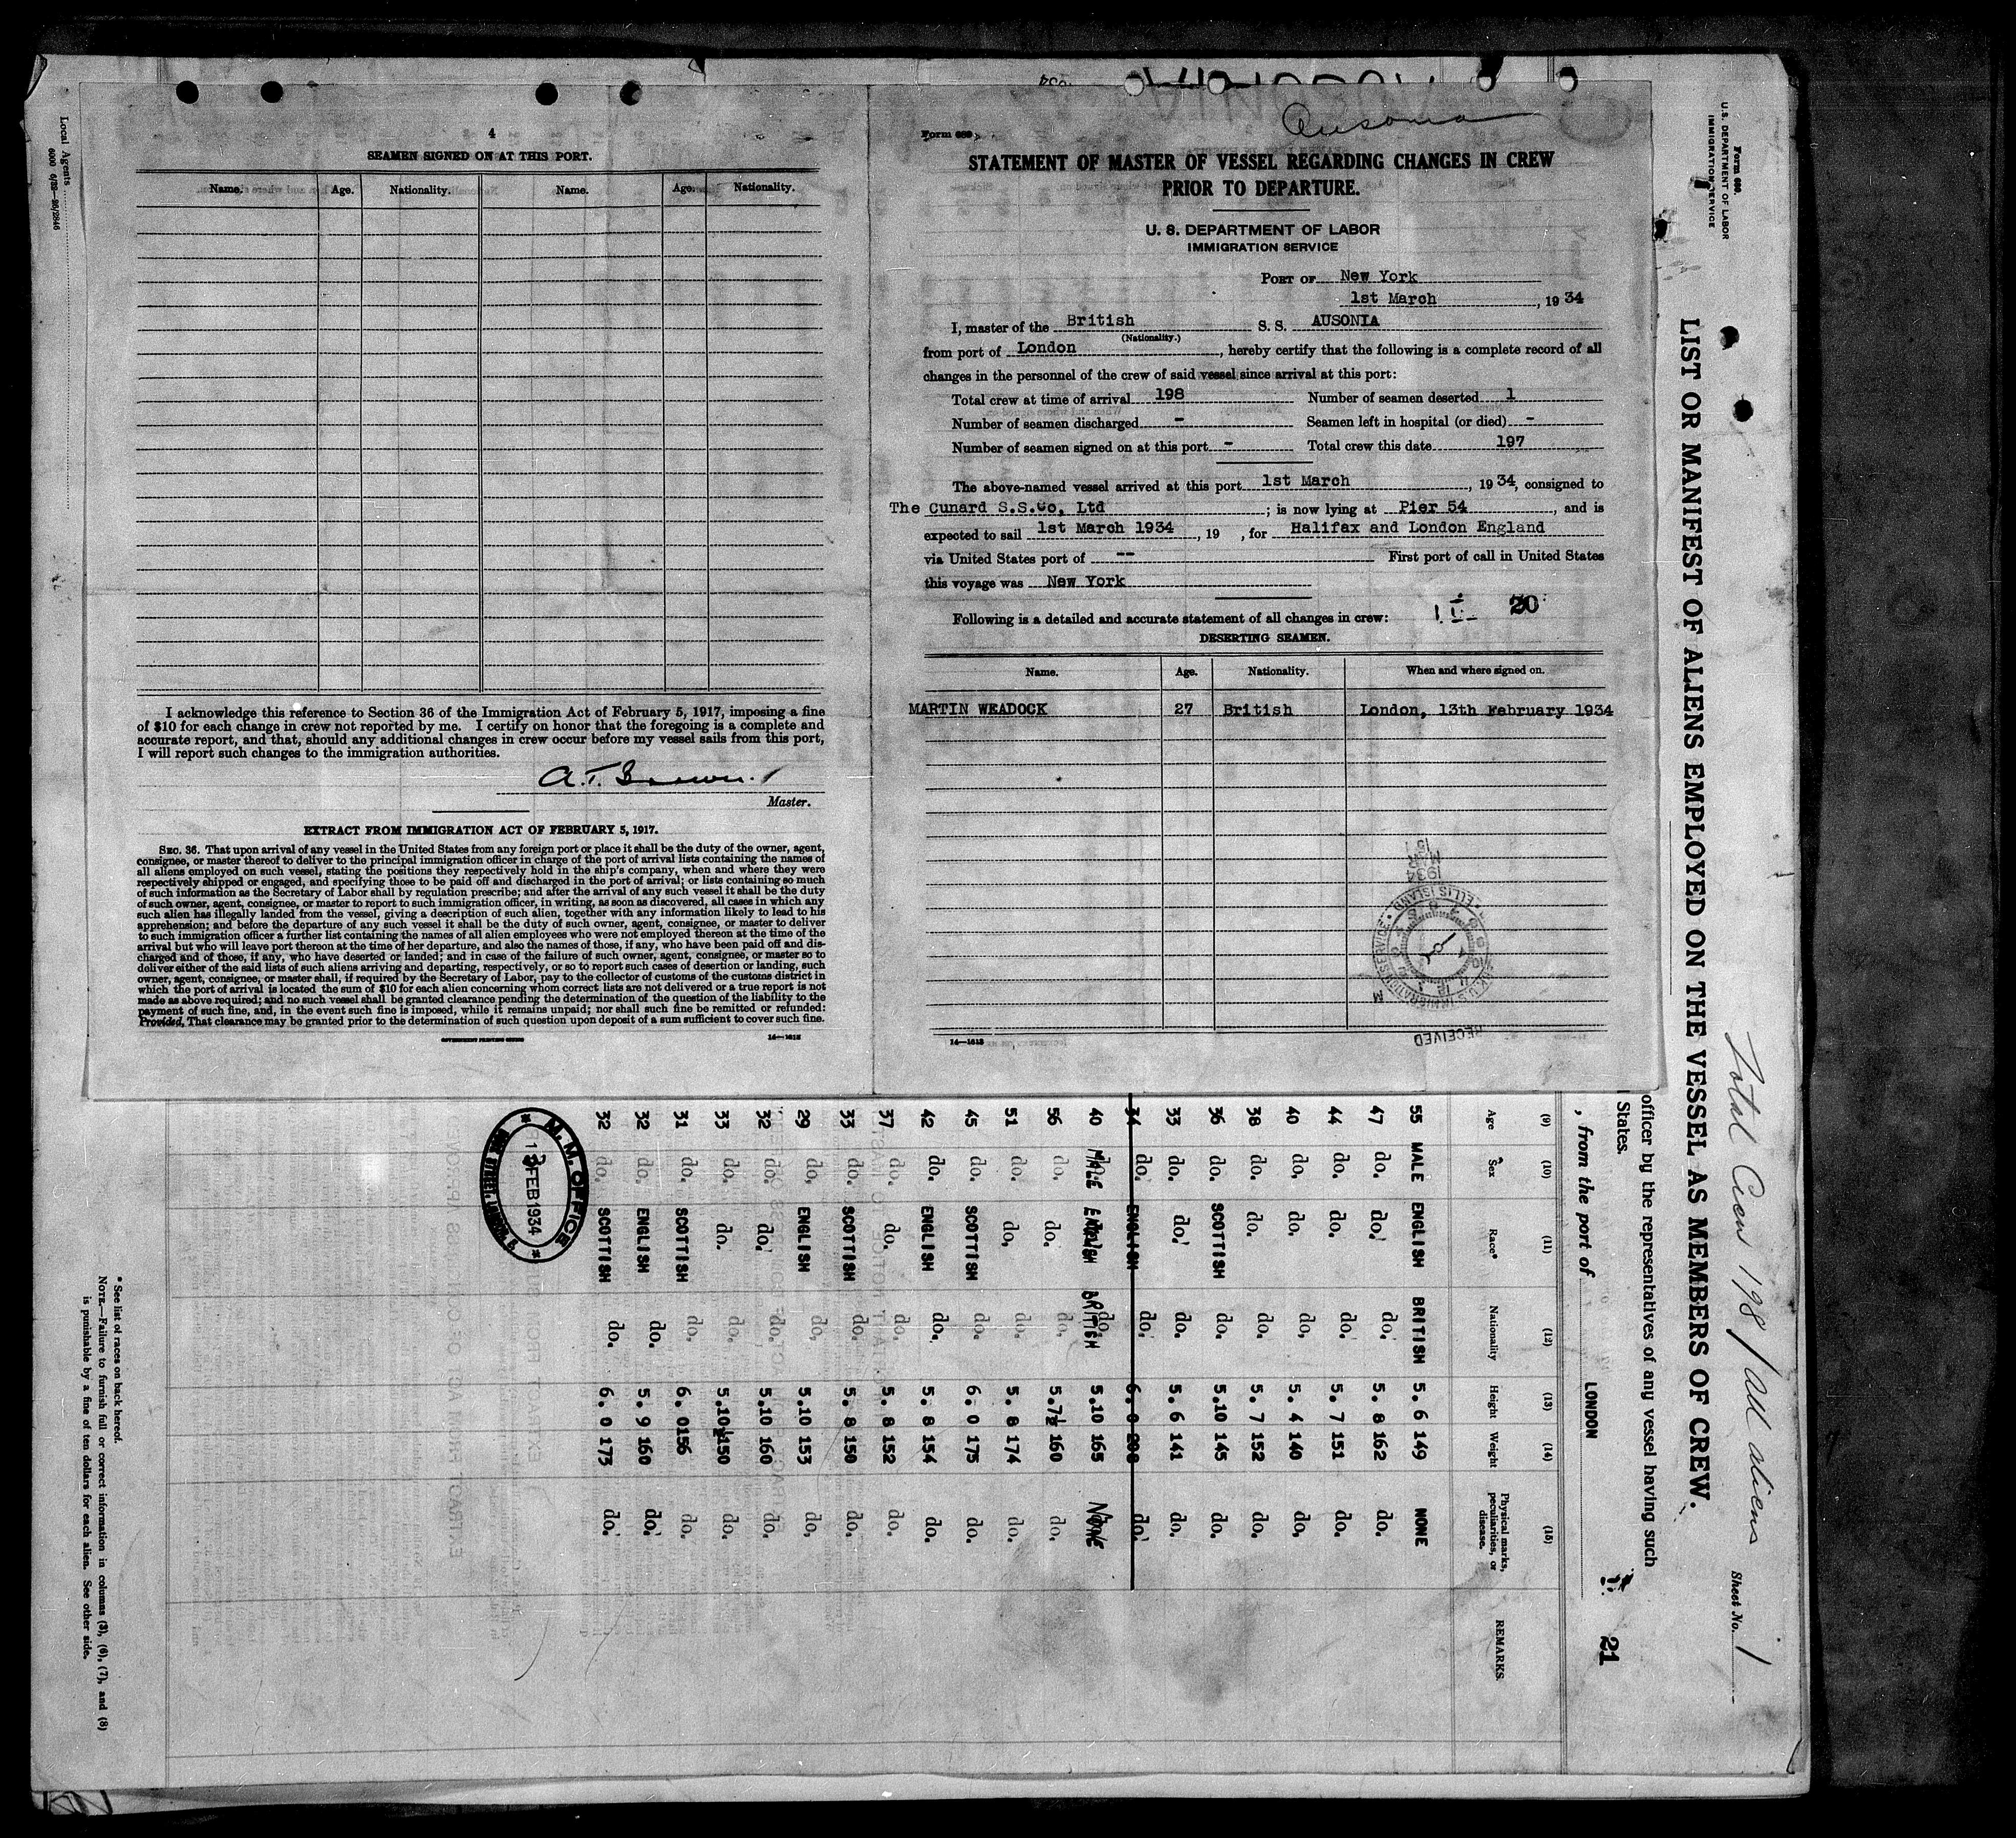 4
SEAMEN SIGNED ON AT THIS PORT.
Name. Age. Nationality. Name. Age. Nationality.
I acknowledge this reference to Section 36 of the Immigration Act of February 5, 1917, imposing a fine
of $10 for each change in crew not reported by me. I certify on honor that the foregoing is a complete and
accurate report, and that, should any additional changes in crew occur before my vessel sails from this port,
I will report such changes to the immigration authorities.
A.T. Brown.
Master.
EXTRACT FROM IMMIGRATION ACT OF FEBRUARY 5, 1917.
SEC. 36. That upon arrival of any vessel in the United States from any foreign port or place it shall be the duty of the owner, agent,
consignee, or master thereof to deliver to the principal immigration officer in charge of the port of arrival lists containing the names of
all aliens employed on such vessel, stating the positions they respectively hold in the ship's company, when and where they were
respectively shipped or engaged, and specifying those to be paid off and discharged in the port of arrival; or lists containing so much
of such information as the Secretary of Labor shall by regulation prescribe; and after the arrival of any such vessel it shall be the duty
of such owner, agent, consignee, or master to report to such immigration officer, in writing, as soon as discovered, all cases in which any
such alien has illegally landed from the vessel, giving a description of such alien, together with any information likely to lead to his
apprehension; and before the departure of any such vessel it shall be the duty of such owner, agent, consignee, or master to deliver
to such immigration officer a further list containing the names of all alien employees who were not employed thereon at the time of the
arrival but who will leave port thereon at the time of her departure, and also the names of those, if any, who have been paid off and dis-
charged and of those, if any, who have deserted or landed; and in case of the failure of such owner, agent, consignee, or master so to
deliver either of the said lists of such aliens arriving and departing, respectively, or so to report such cases of desertion or landing, such
owner, agent, consignee, or master shall, if required by the Secretary of Labor, pay to the collector of customs of the customs district in
which the port of arrival is located the sum of $10 for each alien concerning whom correct lists are not delivered or a true report is not
made as above required; and no such vessel shall be granted clearance pending the determination of the question of the liability to the
payment of such fine, and, in the event such fine is imposed, while it remains unpaid; nor shall such fine be remitted or refunded:
Provided, That clearance may be granted prior to the determination of such question upon deposit of a sum sufficient to cover such fine.
GOVERNMENT PRINTING OFFICE 14—1613
Ausonia
Form 689
STATEMENT OF MASTER OF VESSEL REGARDING CHANGES IN CREW
PRIOR TO DEPARTURE.
U. S. DEPARTMENT OF LABOR
IMMIGRATION SERVICE
PORT OF New York
1st March, 1934
I, master of the British S. S. AUSONIA
(Nationality.)
from port of London, hereby certify that the following is a complete record of all
changes in the personnel of the crew of said vessel since arrival at this port:
Total crew at time of arrival 198 Number of seamen deserted 1
Number of seamen discharged - Seamen left in hospital (or died) -
Number of seamen signed on at this port - Total crew this date 197
The above-named vessel arrived at this port 1st March, 1934, consigned to
The Cunard S.S.Co, Ltd; is now lying at Pier 54, and is
expected to sail 1st March 1934, 19 , for Halifax and London England
via United States port of -- First port of call in United States
this voyage was New York
20
Following is a detailed and accurate statement of all changes in crew:
DESERTING SEAMEN.
Name. Age. Nationality. When and where signed on.
MARTIN WEADOCK 27 British London, 13th February 1934
14—1613
RECEIVED
U.S. IMMIGRATION SERVICE
ELLIS ISLAND
1934
Form 680.
U. S. DEPARTMENT OF LABOR
IMMIGRATION SERVICE
LIST OR MANIFEST OF ALIENS EMPLOYED ON THE VESSEL AS MEMBERS OF CREW.
Total Crew 198 / all aliens
Sheet No. 1
officer by the representatives of any vessel having such
States.
, from the port of LONDON
21
(9) (10) (11) (12) (13) (14) (15)
Age Sex Race* Nationality Height Weight Physical marks, peculiarities, or disease. REMARKS.
55 MALE ENGLISH BRITISH 5. 6 149 NONE
47 do. do. do. 5. 8 162 do.
44 do. do. do. 5. 7 151 do.
40 do. do. do. 5. 4 140 do.
38 do. do. do. 5. 7 152 do.
36 do. SCOTTISH do. 5.10 145 do.
33 do. do. do. 5. 6 141 do.
34 do. ENGLISH do. 6. 0 208 do.
40 MALE ENGLISH BRITISH 5.10 165 NONE
56 do. do. do. 5.7½ 160 do.
51 do. do. do. 5. 8 174 do.
45 do. SCOTTISH do. 6. 0 175 do.
42 do. ENGLISH do. 5. 8 154 do.
37 do. do. do. 5. 8 152 do.
33 do. SCOTTISH do. 5. 8 150 do.
29 do. ENGLISH do. 5.10 153 do.
32 do. do. do. 5.10 160 do.
33 do. do. do. 5.10½ 150 do.
31 do. SCOTTISH do. 6. 0 156 do.
32 do. ENGLISH do. 5. 9 160 do.
32 do. SCOTTISH do. 6. 0 173 do.
M. M. OFFICE
13 FEB 1934
* See list of races on back hereof.
NOTE.—Failure to furnish full or correct information in columns (3), (6), (7), and (8)
is punishable by a fine of ten dollars for each alien. See other side.
Local Agents